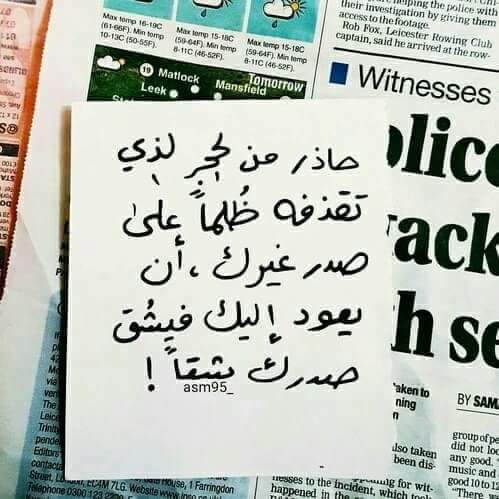 Max temp 16-19C
(61-66F). Min temp
10-13C (50-55F).
Max temp 15-18C
(59-64F). Min temp
8-11C (46-52F).
Max temp 15-18C
(59-64F). Min temp
8-11C (46-52F).
19 Matlock
Leek
Mansfield
Tomorrow
helping the police with
their investigation by giving them
access to the footage.
Rob Fox, Leicester Rowing Club
captain, said he arrived at the row-
Witnesses
olice
ack
h se
حاذر من لحجرِ لذي
تقذفه ظُلماً على
صدر غيرك ، أن
يعود إليك فيشُق
صدرك شقاً !
asm95_
BY SAM
aken to
ning
also taken
been dis-
for wit-
nesses to the incident, which took
happened in the
group of pe
did not loc
any good.
music and
good 10 to 12
"There
House, 1 Farringdon
London, EC4M 7LG. Website www.ipso.co.uk
Telephone 0300 123 2220